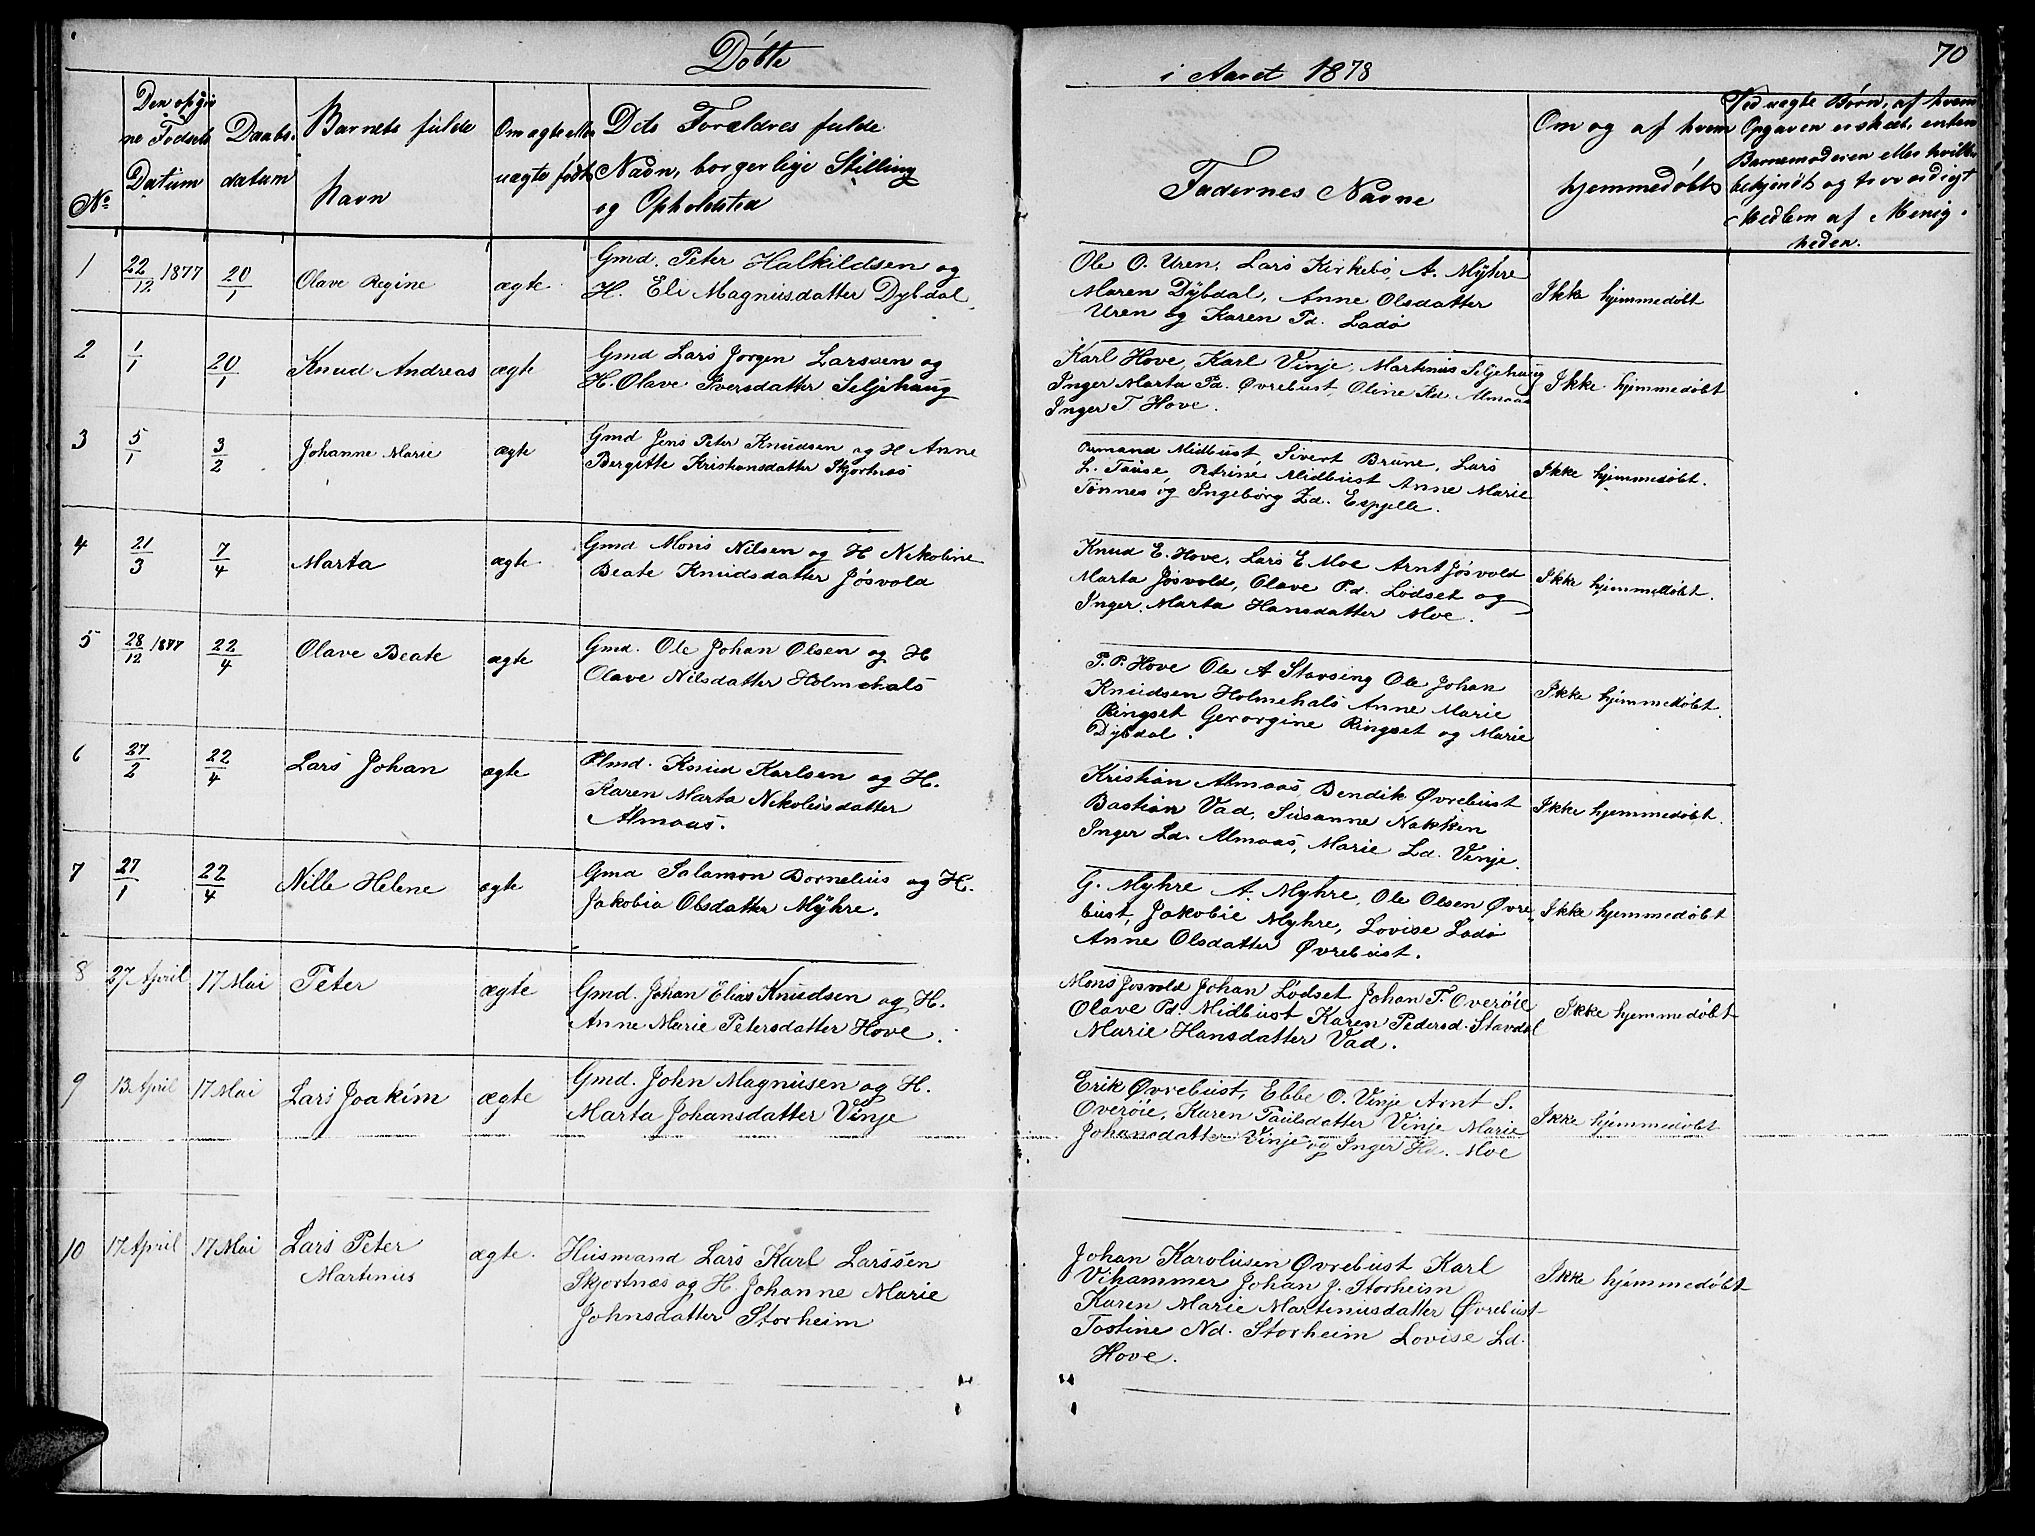 Döbte
i Aaret 1878
70
No
Den opgiv
ne Fødsels
Datum
Daabs
datum
Barnets fulde
Navn
Om ægte eller
uægte født
Dets Forældres fulde
Navn, borgerlige Stilling
og Opholdsted
Faddernes Navne
Om og af hvem
hjemmedøbt
Ved uægte Børn, af hvem
Opgaven er skeet, enten
Barnemoderen eller hvilket
bekjendt og troværdigt
Medlem af Menig-
heden.
1
22/12 1877
20/1
Olave Regine
ægte
Gmd. Peter Halkildsen og
H. Eli Magnusdatter Dybdal
Ole O. Uren, Lars Kirkebö, A. Myhre
Maren Dybdal, Anne Olsdatter
Uren og Karen Pd. Ladö
Ikke hjemmedøbt
2
1/1
20/1
Knud Andreas
ægte
Gmd Lars Jørgen Larssen og
H. Olave Iversdatter Seljehaug
Karl Hove, Karl Vinje, Martinus Seljehaug
Inger Marta Pd. Øvrebust, Oline Kd. Almaas
Inger T Hove.
Ikke hjemmedøbt
3
5/1
3/2
Johanne Marie
ægte
Gmd Jens Peter Knudsen og H Anne
Bergitte Kristiansdatter Skjortnæs
Midbust Sivert Brune, Lars
L. Tause, Petrine Midbust Anne Marie
Tønnes og Ingeborg Ld. Espjelle.
Ikke hjemmedøbt.
4
21/3
7/4
Marta
ægte
Gmd Mons Nilsen og H Nikoline
Beate Knudsdatter Jösvold
Knud E. Hove, Lars E Moe Arnt Jösvold
Marta Jösvold, Olave P.d. Lödset og
Inger Marta Hansdatter Moe.
Ikke hjemmedøbt.
5
28/12 1877
22/4
Olave Beate
ægte
Gmd. Ole Johan Olsen og H
Olave Nilsdatter Holmehals
P. P. Hove Ole A Stavseng Ole Johan
Knudsen Holmehals Anne Marie
Ringset Gerorgine Ringset og Marie
Dybdal.
Ikke hjemmedøbt.
6
27/2
22/4
Lars Johan
ægte
Plmd. Knud Karlsen og H.
Karen Marta Nikolusdatter
Almaas.
Kristian Almaas, Bendik Øvrebust
Bastian Vad, Susanne Nakken
Inger Ld. Almaas, Marie Ld. Vinje.
Ikke hjemmedøbt.
7
27/1
22/4
Nille Helene
ægte
Gmd Salamon Bornelius og H.
Jakobia Olsdatter Myhre.
G. Myhre A. Myhre, Ole Olsen Øvre-
bust, Jakobie Myhre, Lovise Ladö
Anne Olsdatter Øvrebust.
Ikke hjemmedøbt
8
27 April
17 Mai
Peter
ægte
Gmd. Johan Elias Knudsen og H.
Anne Marie Petersdatter Hove.
Mons Josvold Johan Lödset Johan T. Overöie
Olave Pd. Midbust Karen Pedersd. Stavdal
Marie Hansdatter Vad.
Ikke hjemmedøbt
9
13 April
17 Mai
Lars Joakim
ægte
Gmd. John Magnusen og H.
Marta Johansdatter Vinje
Erik Øvrebust, Ebbe O. Vinje Arnt S.
Overöie, Karen Paulsdatter Vinje Marie
Johansdatter Vinje og Inger Hd. Moe
Ikke hjemmedøbt
10
17 April
17 Mai
Lars Peter
Martinus
ægte.
Husmand Lars Karl Larssen
Skjortnæs og H. Johanne Marie
Johnsdatter Storheim
Johan Karolusen Øvrebust Karl
Vihammer Johan J. Storheim
Karen Marie Martinusdatter Øvrebust
Tostine Nd. Storheim Lovise Ld.
Hove.
Ikke hjemmedøbt